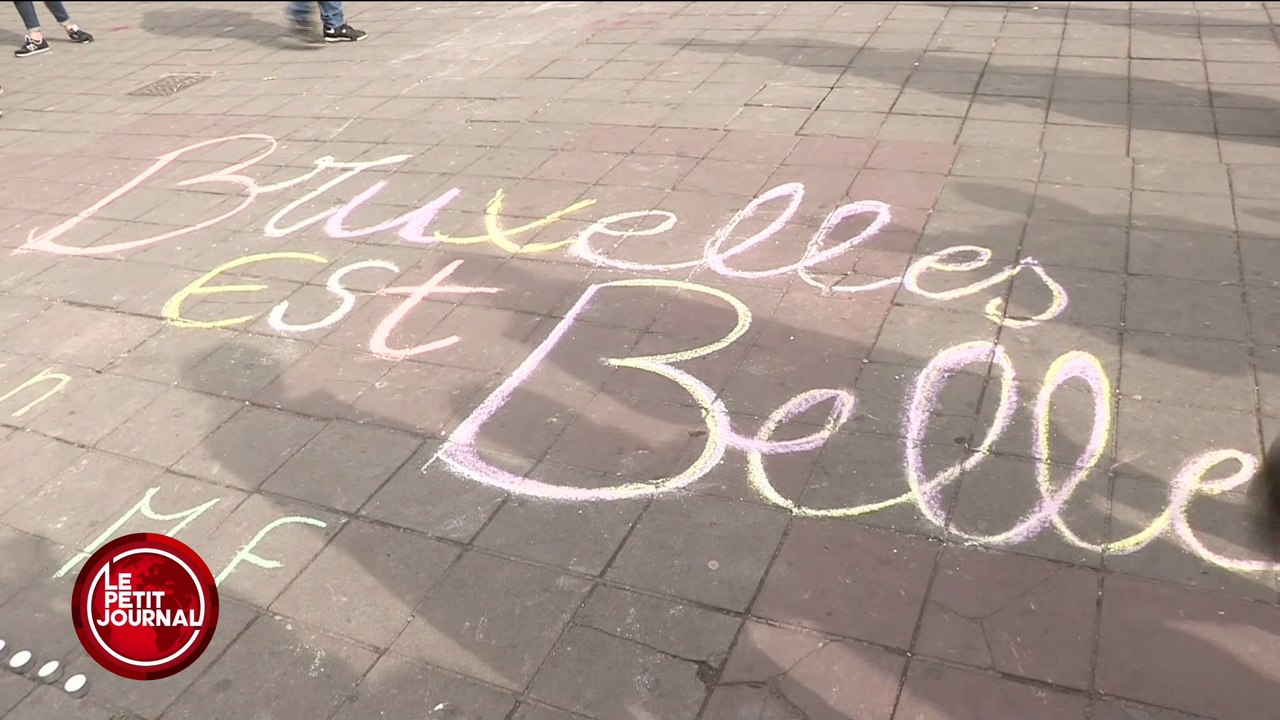 Bruxelles
EST Belle
n
Mf
LE
PETIT
JOURNAL